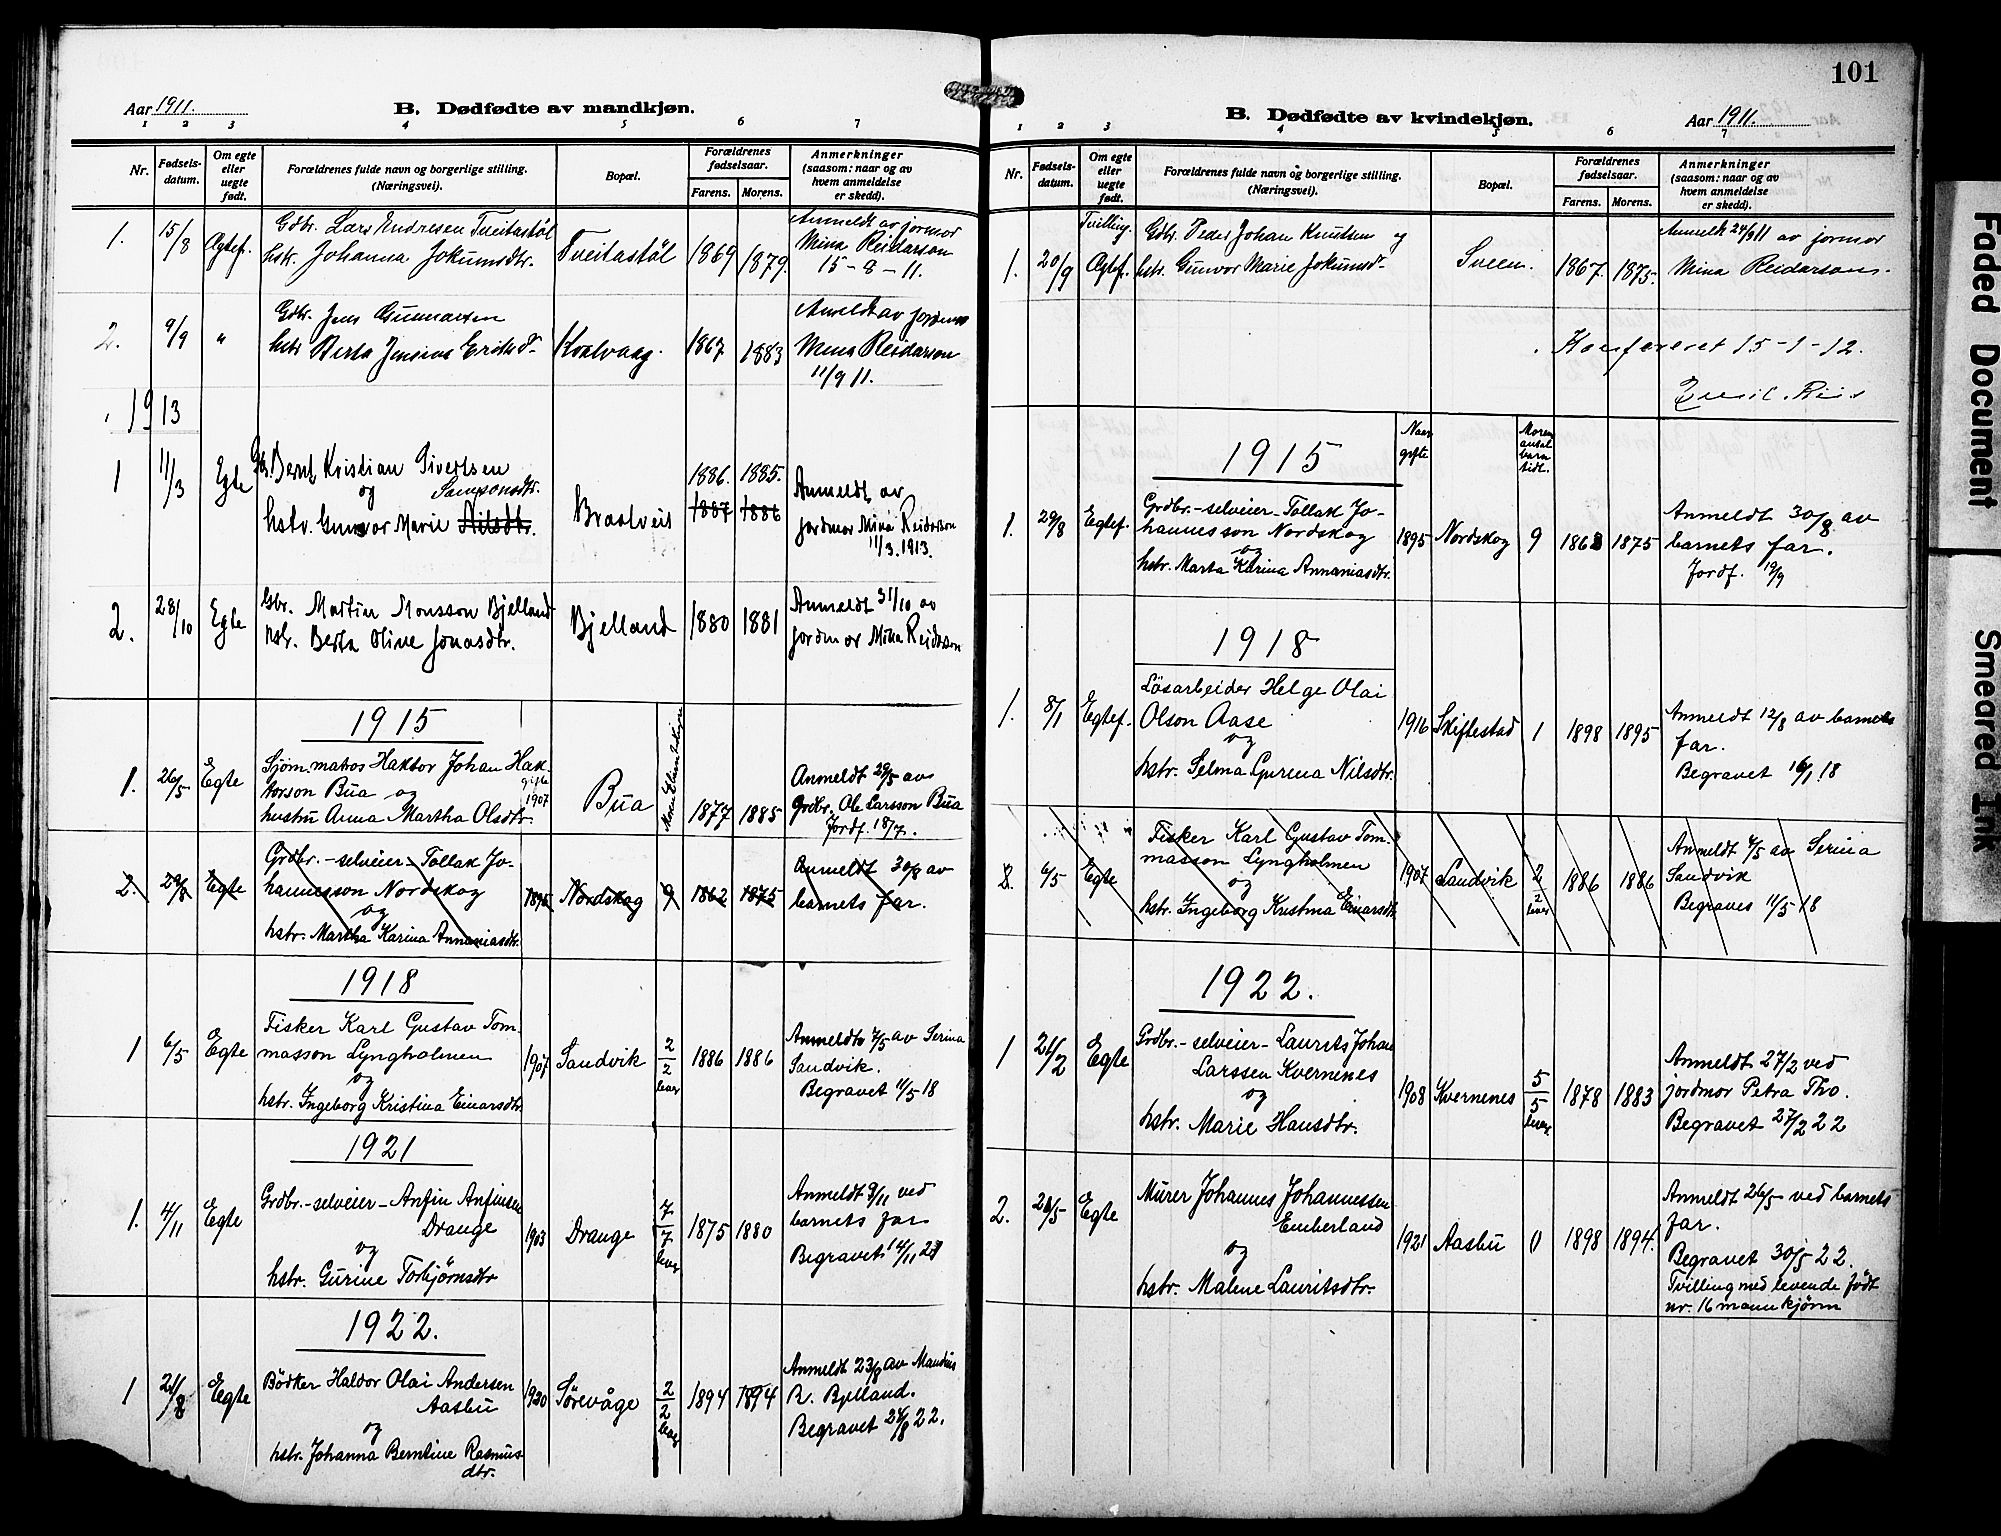 Aar 1911.
B. Dødfødte av mandkjøn.
1 2 3 4 5 6 7
Nr.
Fødsels-
datum.
Om egte
eller
uegte
født.
Forældrenes fulde navn og borgerlige stilling.
(Næringsvei).
Bopæl.
Forældrenes
fødselsaar.
Farens. Morens.
Anmerkninger
(saasom: naar og av
hvem anmeldelse
er skedd).
1. 15/8 Ægtef.
Gdbr. Lars Andresen Tveitastøl
hstr. Johanna Jokumsdtr.
Tveitastøl 1869 1879.
Anmeldt av jormor
Mina Reidarson
15-8-11.
2. 9/9 "
Gdbr. Jens Gunnarsen
hstr Berta Jensine Eriksd-
Kvalvaag. 1867 1883
Anmeldt av jordmor
Mina Reidarson
11/9 11.
1913
1 11/3 Egte
Gbr. Bernt Kristian Sivertsen
og Samsonsdtr.
hstr. Gunvor Marie Nilsdtr.
Braatveit
1886. 1885.
1887 1886
Anmeldt av
jordmor Mina Reidarson
11/3. 1913.
2. 28/10 Egte
Gbr. Martin Monsson Bjelland
hstr. Berta Oline Jonasdtr.
Bjelland 1880 1881
Anmeldt 31/10 av
jordmor Mina Reidarson
1915
1. 26/5 Egte
Sjøm. matros Haktor Johan Hak-
torson Bua og
hustru Anna Martha Olsdtr.
gifte
1907
Bua 1877 1885
Anmeldt 29/5 av
Grdbr. Ole Larsson Bua
Jordf. 18/7.
2. 29/8 Egte
Grdbr.-selveier- Tollak Jo-
hannesson Nordskog
og
hstr. Martha Karina Annaniasdtr.
1895 Nordskog 9 1862 1875
Anmeldt 30/8 av
barnets far.
1918
1 6/5 Egte
Fisker Karl Gustav Tom-
masson Lyngholmen
og
hstr. Ingeborg Kristina Einarsdtr.
1907 Sandvik 2/2 lever 1886 1886
Anmeldt 7/5 av Serina
Sandvik.
Begravet 11/5 18
1921
1. 4/11 Egte
Grdbr.-selveier- Anfin Anfinsen
Drange
og
hstr. Gurine Torbjørnsdtr
1903 Drange 7/7 lever 1875 1880
Anmeldt 9/11 ved
barnets far
Begravet 14/11 21
1922.
1 21/8 Egte
Bødker Haldor Olai Andersen
Aasbu
og
hstr. Johanna Berntine Rasmus-
dtr.
1920 Sørevåge 2/2 lever 1894 1894
Anmeldt 23/8 av Mandius
R. Bjelland.
Begravet 24/8 22.
101
B. Dødfødte av kvindekjøn.
Aar 1911.
1 2 3 4 5 6 7
Nr.
Fødsels-
datum.
Om egte
eller
uegte
født.
Forældrenes fulde navn og borgerlige stilling.
(Næringsvei).
Bopæl.
Forældrenes
fødselsaar.
Farens. Morens.
Anmerkninger
(saasom: naar og av
hvem anmeldelse
er skedd).
1. 20/9
Tvilling.
Ægtef.
Gdbr. Peder Johan Knutsen og
hstr. Gunvor Marie Jokumsd-
Sveen. 1867. 1875.
Anmeldt 24/9 11 av jormor
Mina Reidarson.
Konfereret 15-1-12.
Emil Riis
1915
Naar
gifte
Morens
antal
barn
tidl.
1. 29/8 Egtef.
Grdbr.-selveier- Tollak Jo-
hannesson Nordskog
og
hstr. Marta Karina Annaniasdtr.
1895 Nordskog 9 1862 1875
Anmeldt 30/8 av
barnets far.
Jordf. 19/9
1918
1. 8/1 Egtef.
Løsarbeider Helge Olai
Olson Aase
og
hstr. Selma Gurena Nilsdtr.
1916 Skiftestad 1 1898 1895
Anmeldt 12/8 av barnets
far.
Begravet 16/1 18
2. 6/5 Egte
Fisker Karl Gustav Tom-
masson Lyngholmen
og
hstr. Ingeborg Kristina Einarsdtr.
1907 Sandvik 2/2 lever 1886 1886
Anmeldt 7/5 av Serina
Sandvik
Begraves 11/5 18
1922.
1 21/2 Egte
Grdbr.-selveier- Laurits Johan
Larssen Kvernenes
og
hstr. Marie Hansdtr.
1908 Kvernenes 5/5 lever 1878 1883
Anmeldt 27/2 ved
jordmor Petra Tho.
Begravet 27/2 22
2. 21/5 Egte
Murer Johannes Johannessen
Emberland
og
hstr. Malene Lauritsdtr.
1921 Aasbu 0 1898 1894.
Anmeldt 26/5 ved barnets
far.
Begravet 30/5 22.
Tvilling med levende født
nr. 16 mannkjønn
Faded Document
Smeared Ink